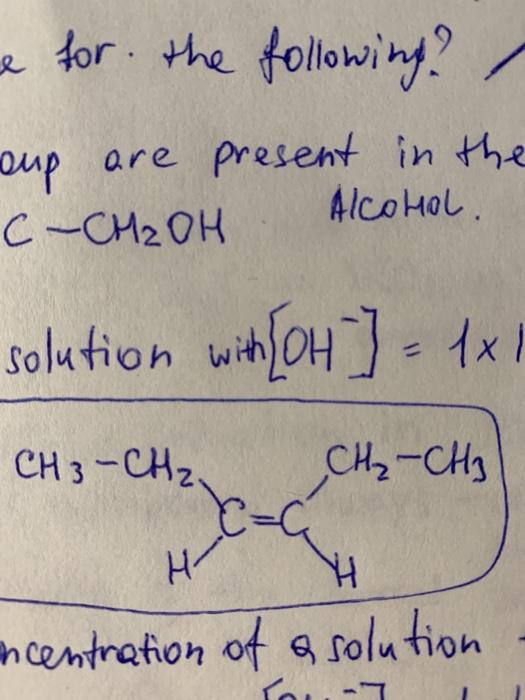 e for. the following?
oup are present in the
C-CH2OH Alcohol.
solution with [OH⁻] = 1x1
CH3-CH2 CH2-CH3
C=C
H H
ncentration of a solution